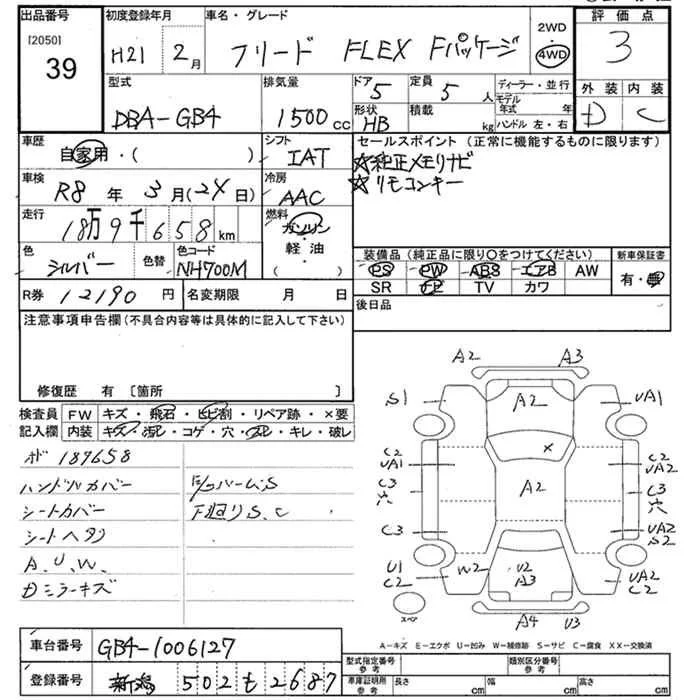 出品番号 初度登録年月 車名・グレード 2WD 評価点
[2050] 39 H21 2月 フリード FLEX Fパッケージ 4WD 3
型式 排気量 ドア 5 定員 5人 ディーラー・並行 外装 内装
DBA-GB4 1500cc 形状 HB 積載 kg モデル年式 年 D C
ハンドル 左・右
車歴 自家用・( ) シフト IAT セールスポイント (正常に機能するものに限ります)
☆純正メモリナビ
☆リモコンキー
車検 R8年 3月(24日) 冷房 AAC
走行 18万9千658km 燃料 ガソリン
軽油
( )
色 シルバー 色替 色コード NH700M
装備品 (純正品に限り○をつけてください) 新車保証書
PS PW ABS エアB AW 有・無
SR ナビ TV カワ
R券 12190円 名変期限 月 日 後日品
注意事項申告欄(不具合内容等は具体的に記入して下さい)
修復歴 有 [箇所 ]
検査員 FW キズ・飛石・ヒビ割・リペア跡・×要
記入欄 内装 キズ・汚レ・コゲ・穴・スレ・キレ・破レ
メーター 189658
ハンドルカバー
シートカバー
下廻りS、C
シートヘタリ
A、U、W、
Dミラーキズ
A2 A3
S1 A2 UA1
C2 × C2
UA1 UA2
C3 A2 C3
穴 穴
C3 UA2
S2
U1 W2 U2 UA2
C2 A3 C2
スペア A4 U3
A－キズ E－エクボ U－凹み W－補修跡 S－サビ C－腐食 XX－交換済
車台番号 GB4-1006127
型式指定番号 参考 類別区分番号 参考
登録番号 新潟 502 も 2687
車庫証明所 参考 長さ cm 幅 cm 高さ cm